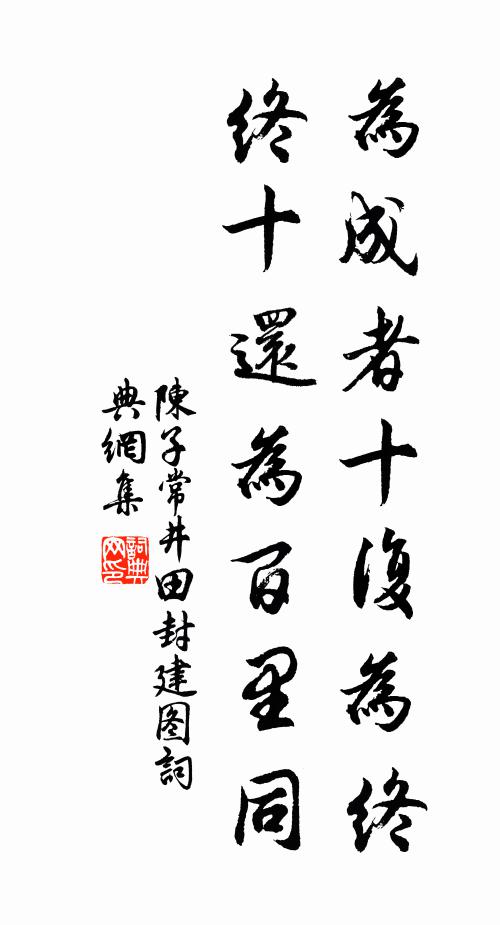 為成者十復為終
終十還為百里同
陳子常井田封建图詞
典網集
詞典
网印